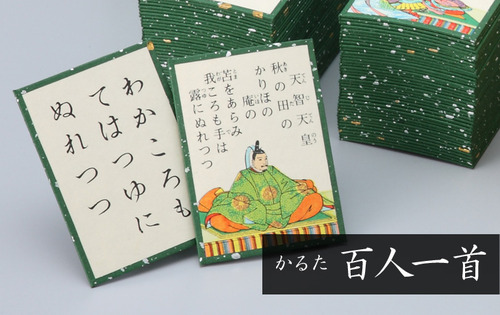 わかころも
てはつゆに
ぬれつつ
天智天皇
秋の田の
かりほの
庵の
苫をあらみ
我ころも手は
露にぬれつつ
かるた 百人一首